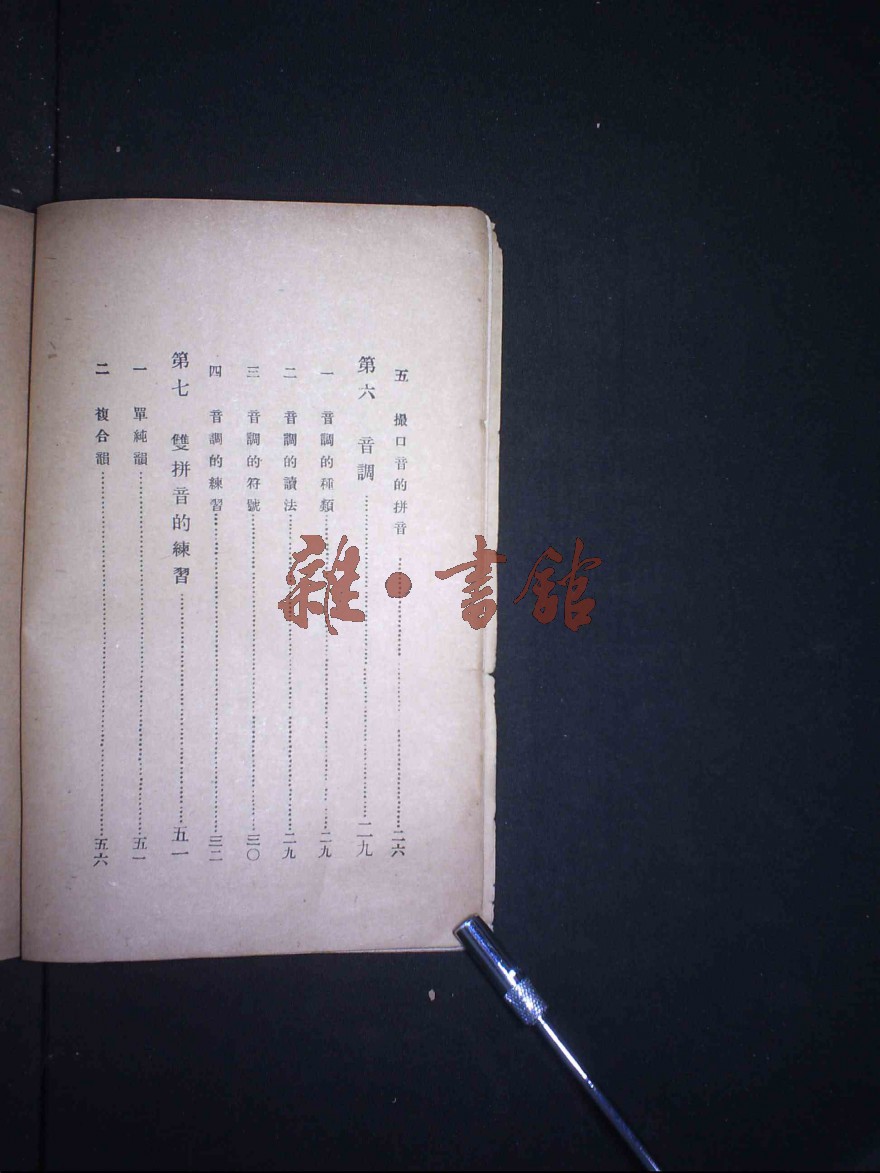 五 撮口音的拼音……二六
第六 音調……二九
一 音調的種類……二九
二 音調的讀法……二九
三 音調的符號……三〇
四 音調的練習……三二
第七 雙拼音的練習……五一
一 單純韻……五一
二 複合韻……五六
雜·書館